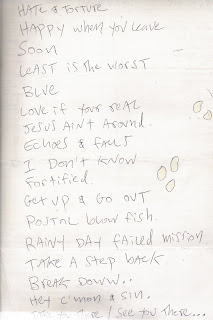 HATE & TORTURE
HAPPY when you leave
Soon
LEAST is the WORST
BLUE
Love if your REAL
Jesus Ain't Around.
Echoes & FALLS
I Don't Know
Fortified.
Get up & Go OUT
POSTAL blow fish.
RAINY DAY FAILED mission
TAKE A STEP back
BREAK DOWN..
Hey c'mon & sin.
I See you There...